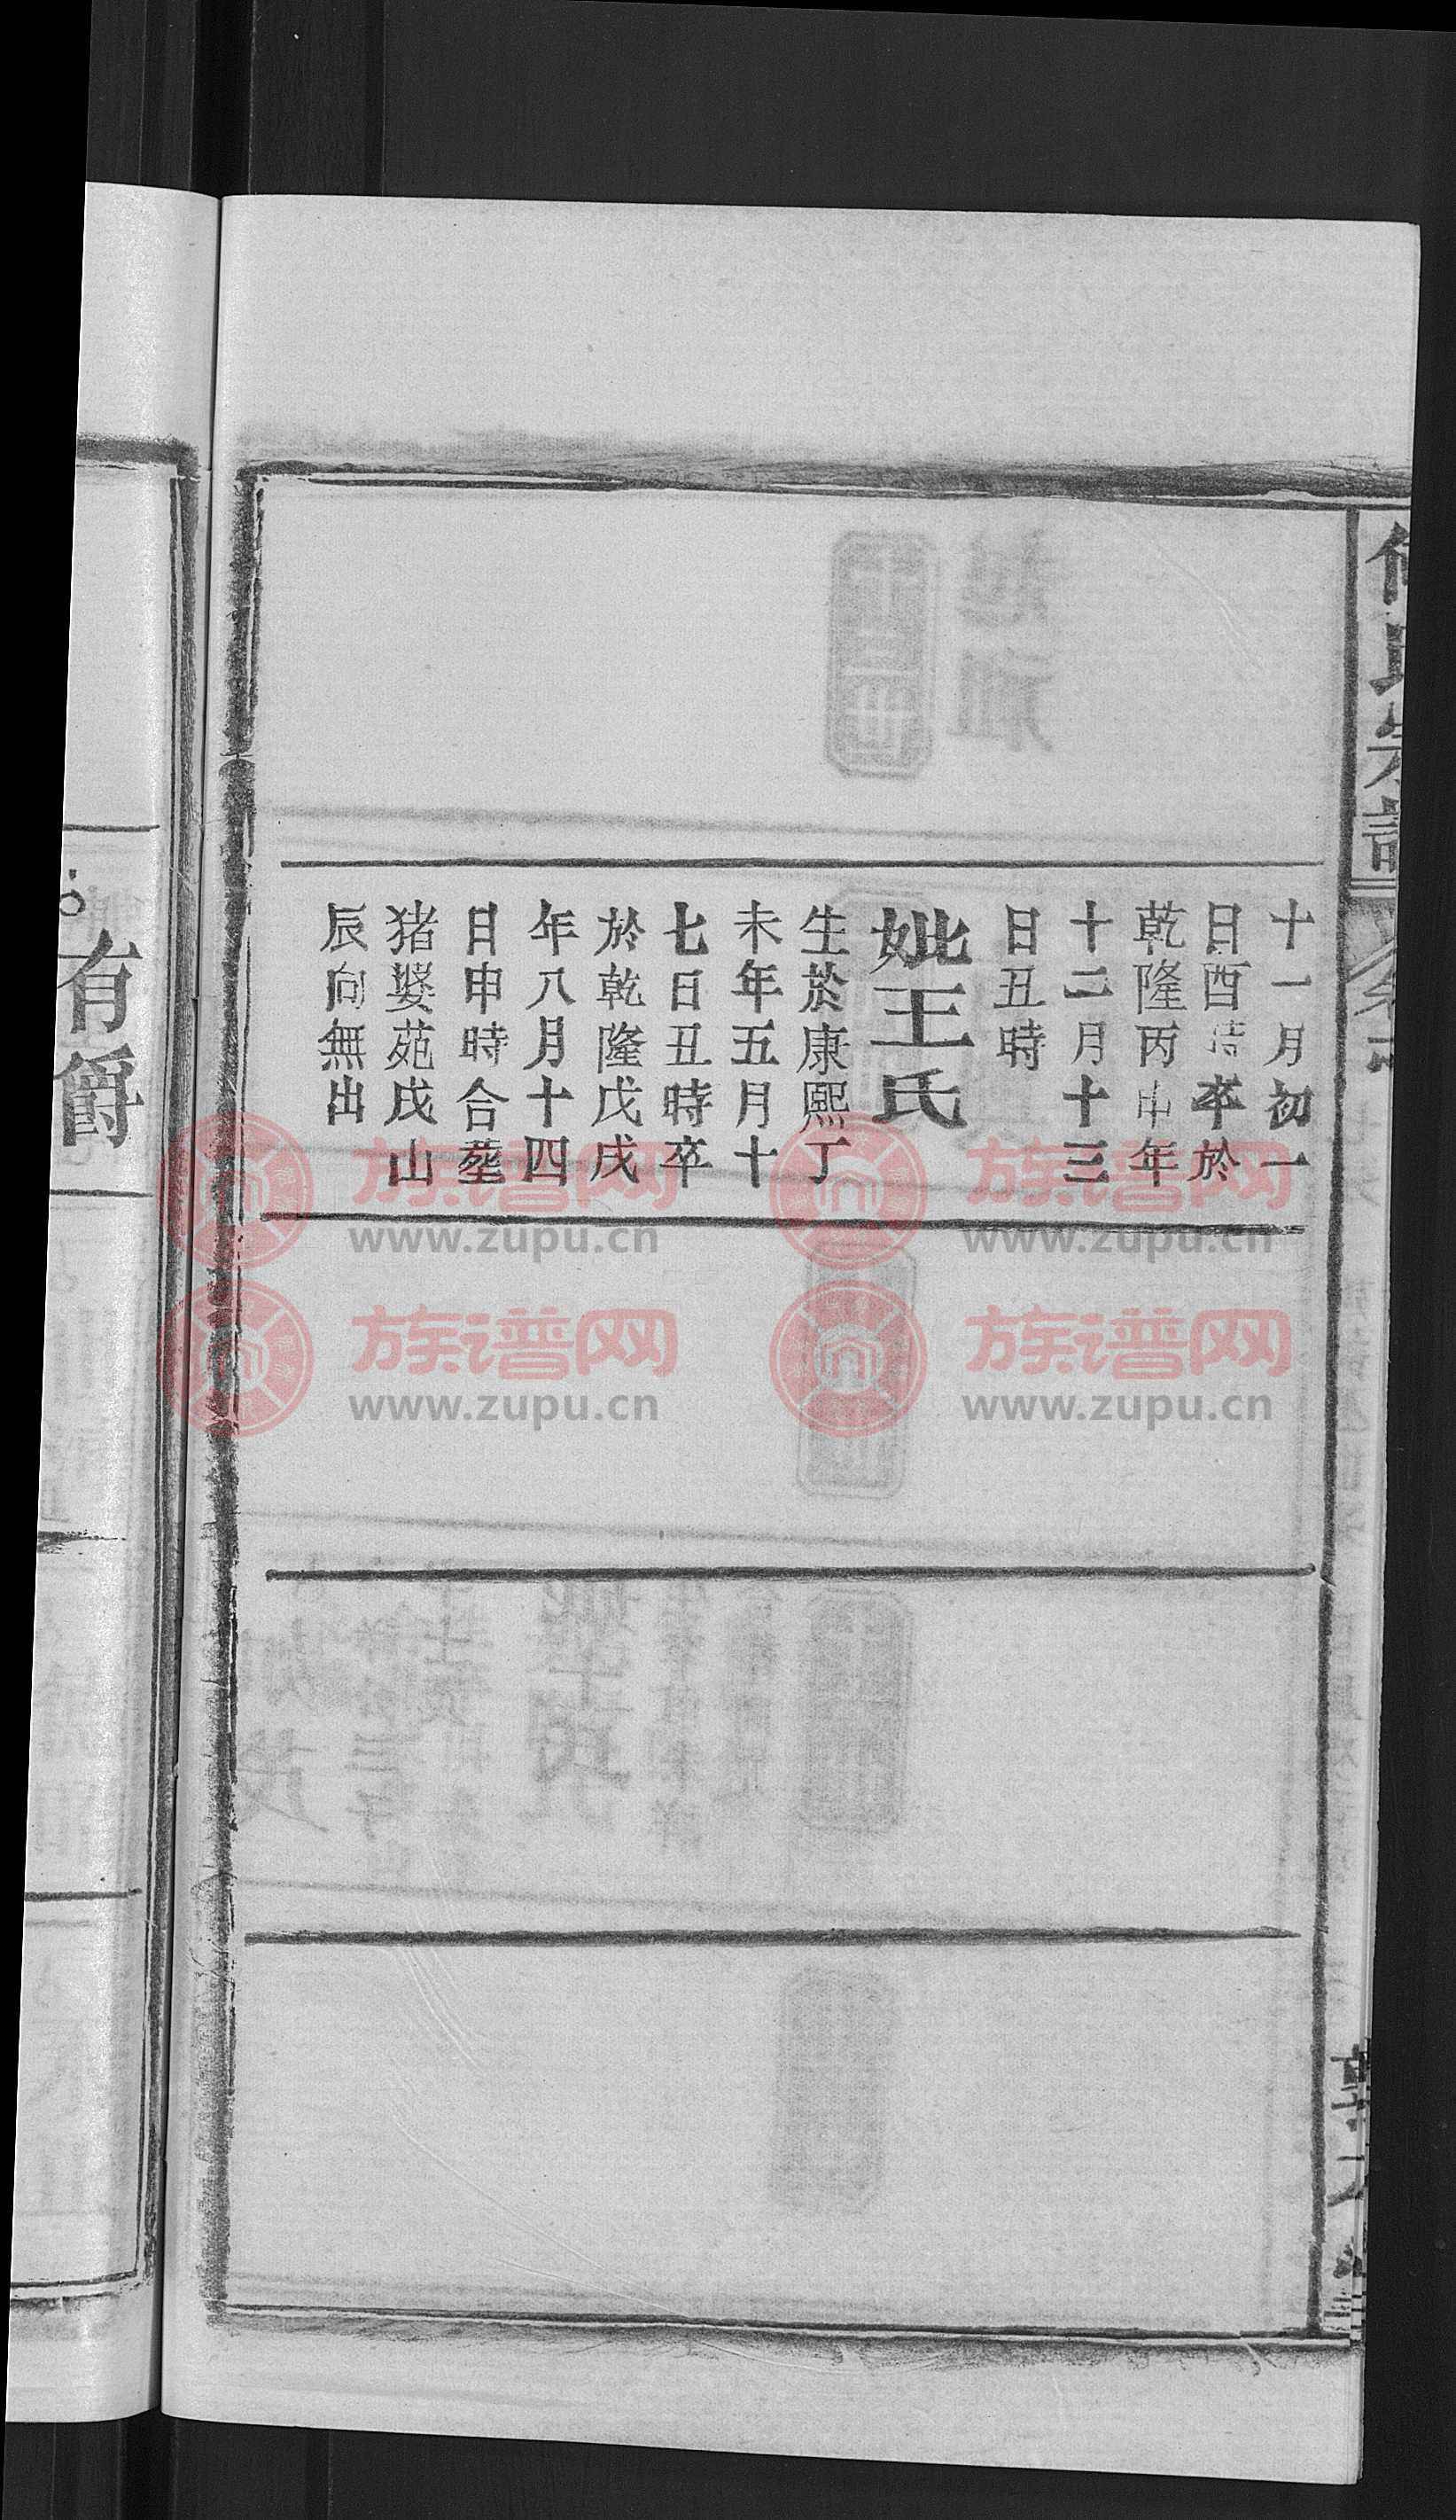 氏宗譜
十一月初一
日酉時卒於
乾隆丙申年
十二月十三
日丑時
妣王氏
生於康熙丁
未年五月十
七日丑時卒
於乾隆戊戌
年八月十四
日申時合塟
猪婆苑戌山
辰向無出
有爵
族谱网
www.zupu.cn
族谱网
www.zupu.cn
族谱网
www.zupu.cn
族谱网
www.zupu.cn